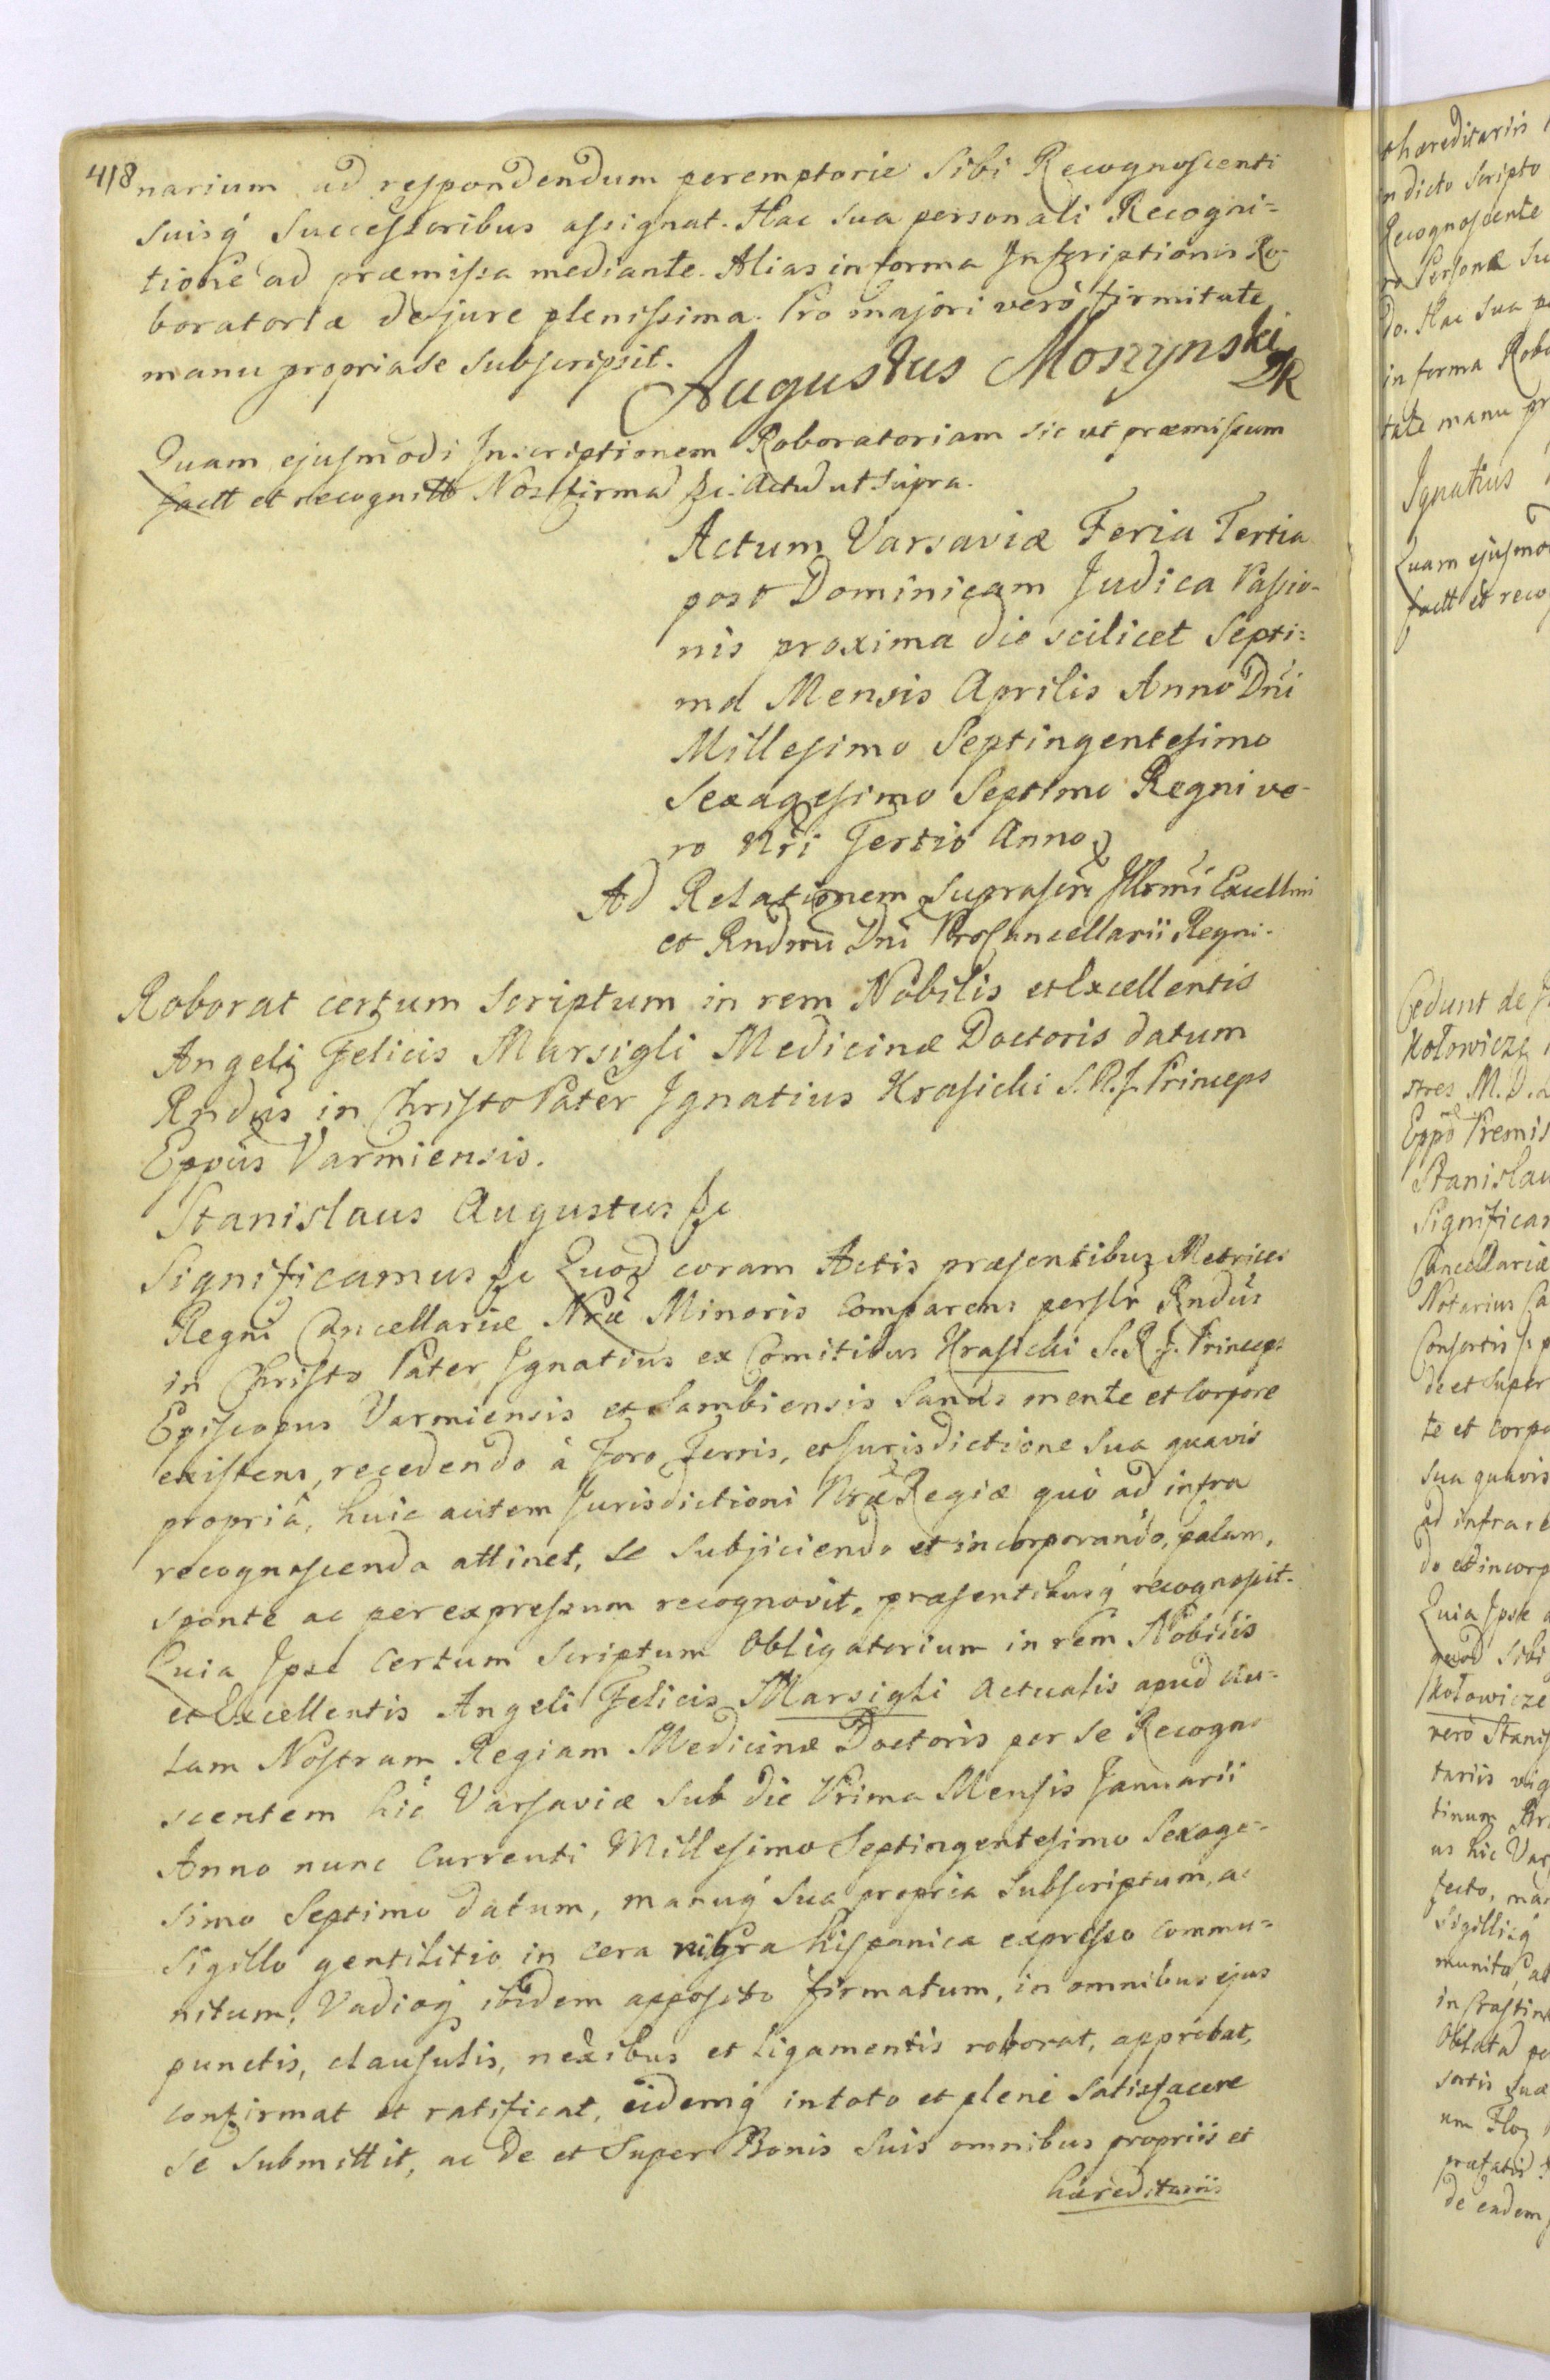 418
narium ad respondendum peremptorie Sibi Recognoscenti
suisq́ Successoribus assignat. Hac sua personali Recogni=
tione ad præmissa mediante. Alias in forma Inscriptionis Ro-
boratoriæ de jure plenissima. Pro majori verò firmitate
manu propria se subscripsit.
Augustus Moszynski
Quam ejusmodi Inscriptionem Roboratoriam sic ut præmissum
factt et recognitt Nos firmad &c. Actud ut supra.
Actum Varsaviæ Feria Tertia
post Dominicam Judica Passio-
nis proxima die scilicet Septi=
ma Mensis Aprilis Anno Dni
Millesimo Septingentesimo
Sexagesimo Septimo Regni ve-
ro Nri Tertio Anno
Ad Relationem suprascri Illrmi Excellmi
et Rndmi Dni ProCancellarii Regni.
Roborat certum scriptum in rem Nobilis et Excellentis
Angeli Felicis Marsigli Medicinæ Doctoris datum
Rndus in Christo Pater Ignatius Krasicki S.R.I. Princeps
Eppus Varmiensis.
Stanislaus Augustus &c
Significamus &c Quod coram Actis præsentibus Metrices
Regni Cancellariæ Nræ Minoris comparens persłr Rndus
in Christo Pater Ignatius ex Comitibus Krasicki S.R.I. Princeps
Episcopus Varmiensis et Sambiensis Sanus mente et corpore
existens, recedendo à Foro, Terris, et Jurisdictione sua quavis
propriâ, huic autem Jurisdictioni Nræ Regiæ quò ad infra
recognoscenda attinet, se subjiciendo et incorporando, palam,
sponte ac per expressum recognovit, præsentibusq́ recognoscit.
Quia Ipse certum scriptum obligatorium in rem Nobilis
et Excellentis Angeli Felicis Marsigli Actualis apud Au=
lam Nostram Regiam Medicinæ Doctoris per se Recogno
scentem hic Varsaviæ sub die Prima Mensis Januarii
Anno nunc currenti Millesimo Septingentesimo Sexage=
simo Septimo datum, manuq́ sua propria subscriptum, ac
sigillo gentilitio in cera nigra hispanica expresso commu=
nitum, Vadioq́ ibidem apposito firmatum, in omnibus ejus
punctis, clausulis, nexibus et ligamentis roborat, approbat,
confirmat et ratificat, eidemq́ in toto et plenè satisfacere
se submittit, ac de et super Bonis suis omnibus propriis et
hæreditariis
hæreditariis
in dicto scripto
Recognoscente
Personæ su
do. Hac sua
in forma Robo
tate manu pr
Ignatius
Quam ejusmo
factt et reco
Cedunt de
Kołowicze
Eppo Premis
Stanislau
Significa
Cancellariæ
Notarius Ca
Consortis
de et super
te et corpo
sua quavis
ad infra re
do et incorp
Quia Ipse
quod sibi
Kołowicze
verò Stanis
tariis
tinum
us hic Var
fecto,
sigilliq́
munito, ac
in Crastin
Oblata
sortis suæ
præfatis
de eadem